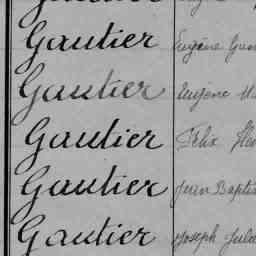 Gautier Eugène
Gautier Eugène
Gautier Felix
Gautier Jean Baptis
Gautier Joseph Jules